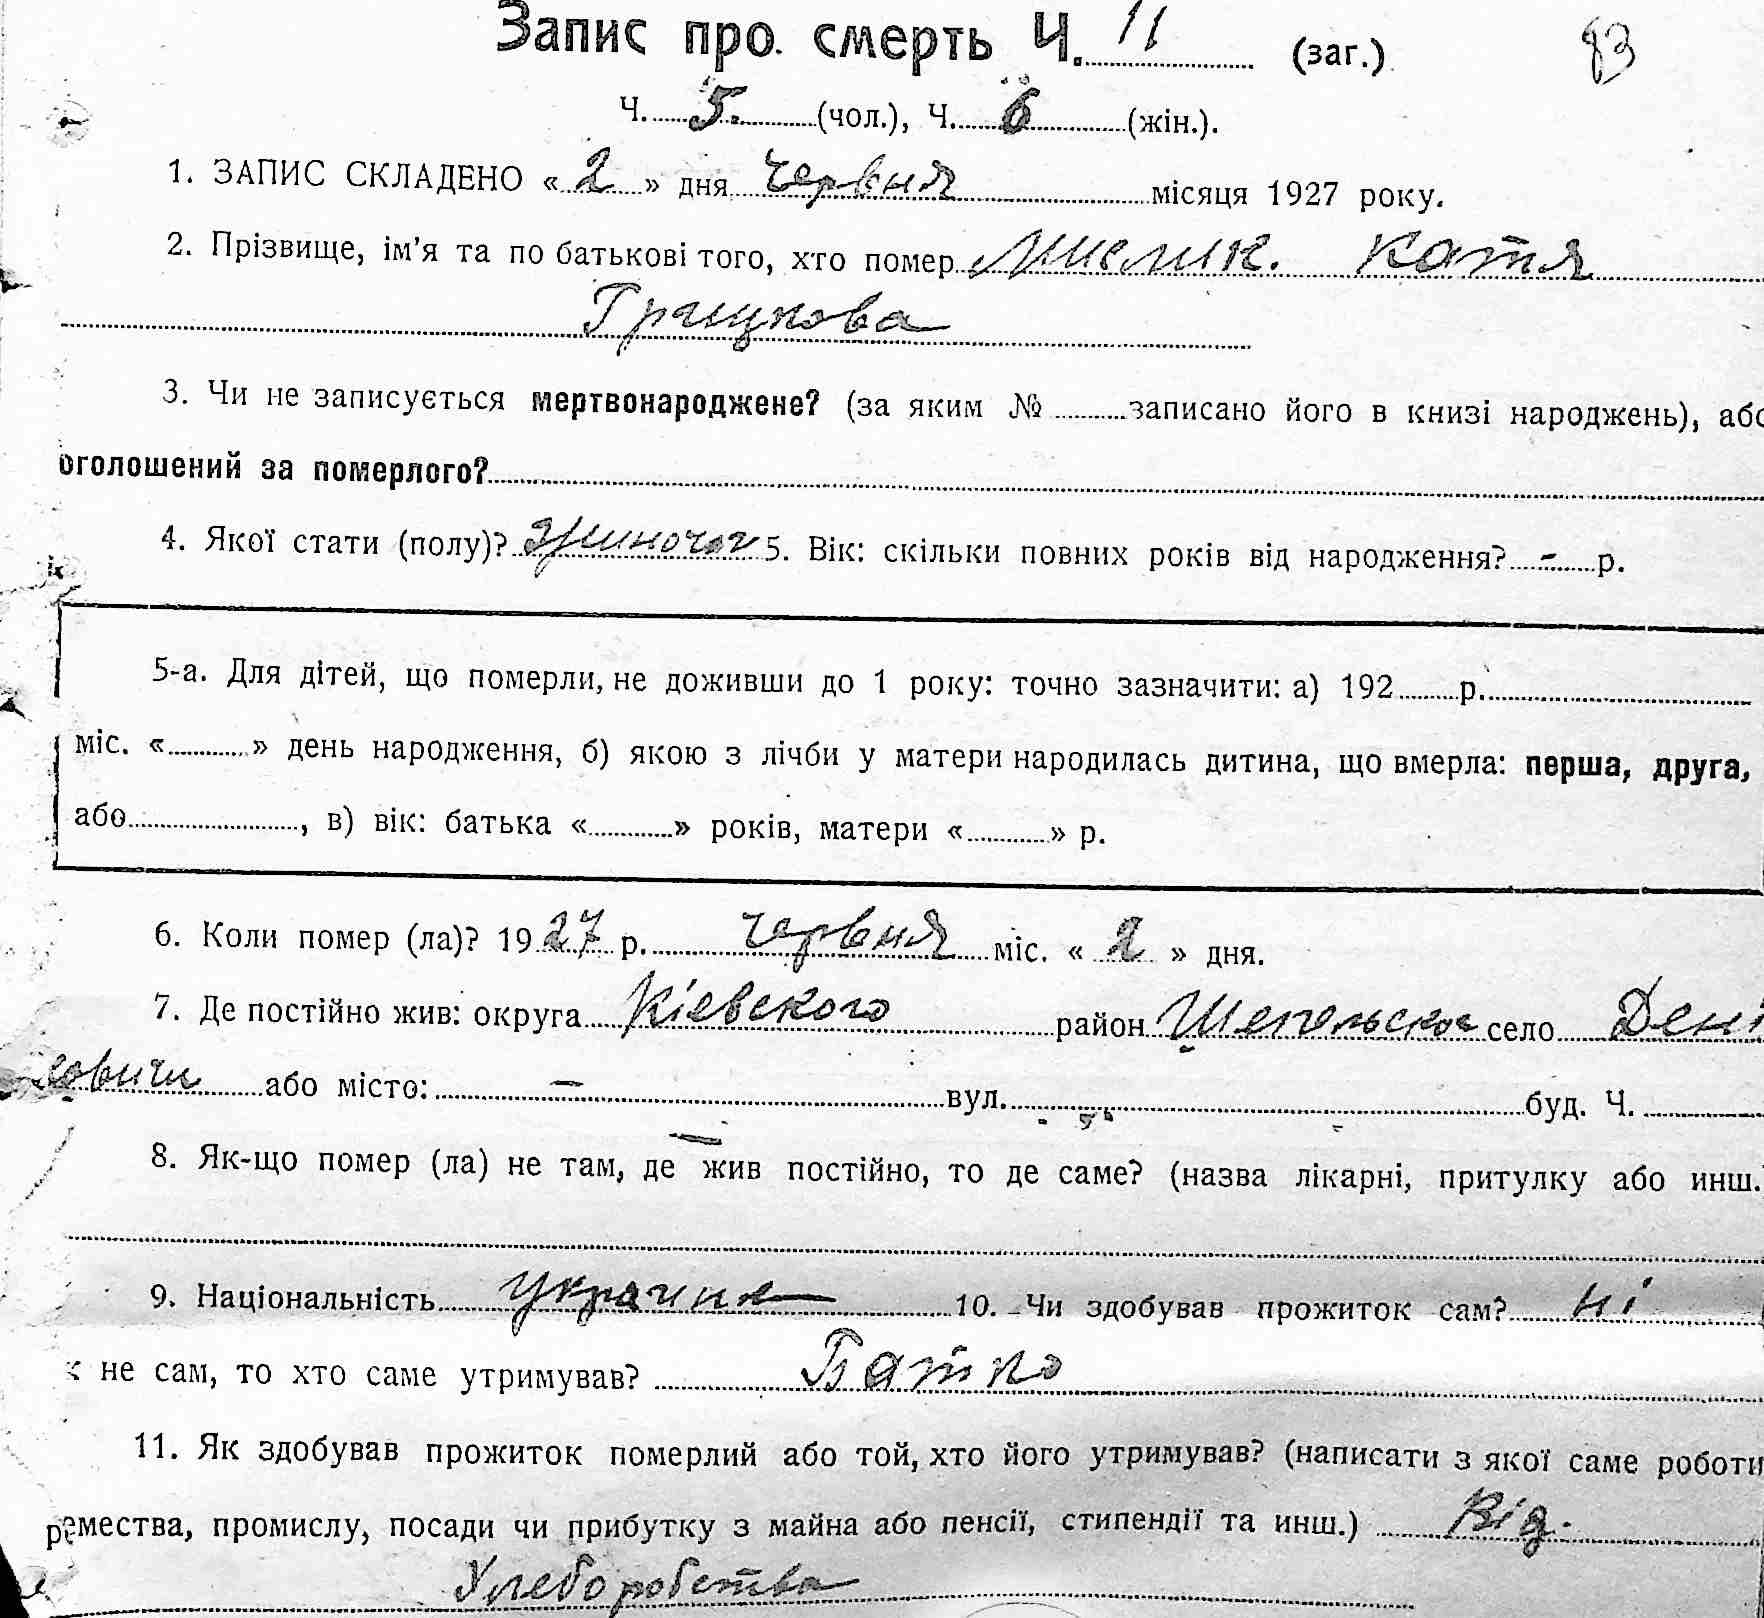 Запис про смерть Ч. 11 (заг.) 93
Ч. 5. (чол.), Ч. 6 (жін.).
1. ЗАПИС СКЛАДЕНО « 2 » дня червня місяця 1927 року.
2. Прізвище, ім'я та по батькові того, хто помер Мислик. Катя
Грицкова
3. Чи не записується мертвонароджене? (за яким № записано його в книзі народжень), або
оголошений за померлого?
4. Якої стати (полу)? 5. Вік: скільки повних років від народження? - р.
5-а. Для дітей, що померли, не доживши до 1 року: точно зазначити: а) 192 р.
міс. « » день народження, б) якою з лічби у матери народилась дитина, що вмерла: перша, друга,
або , в) вік: батька « » років, матери « » р.
6. Коли помер (ла)? 1927 р. червня міс. « 2 » дня.
7. Де постійно жив: округа Кіевского район село Дени
ловичи або місто: — вул. буд. Ч.
8. Як-що помер (ла) не там, де жив постійно, то де саме? (назва лікарні, притулку або инш.
9. Національність 10. Чи здобував прожиток сам? ні
к не сам, то хто саме утримував? Батко
11. Як здобував прожиток померлий або той, хто його утримував? (написати з якої саме роботи
ремества, промислу, посади чи прибутку з майна або пенсії, стипендії та инш.) Від.
Хлеборобства